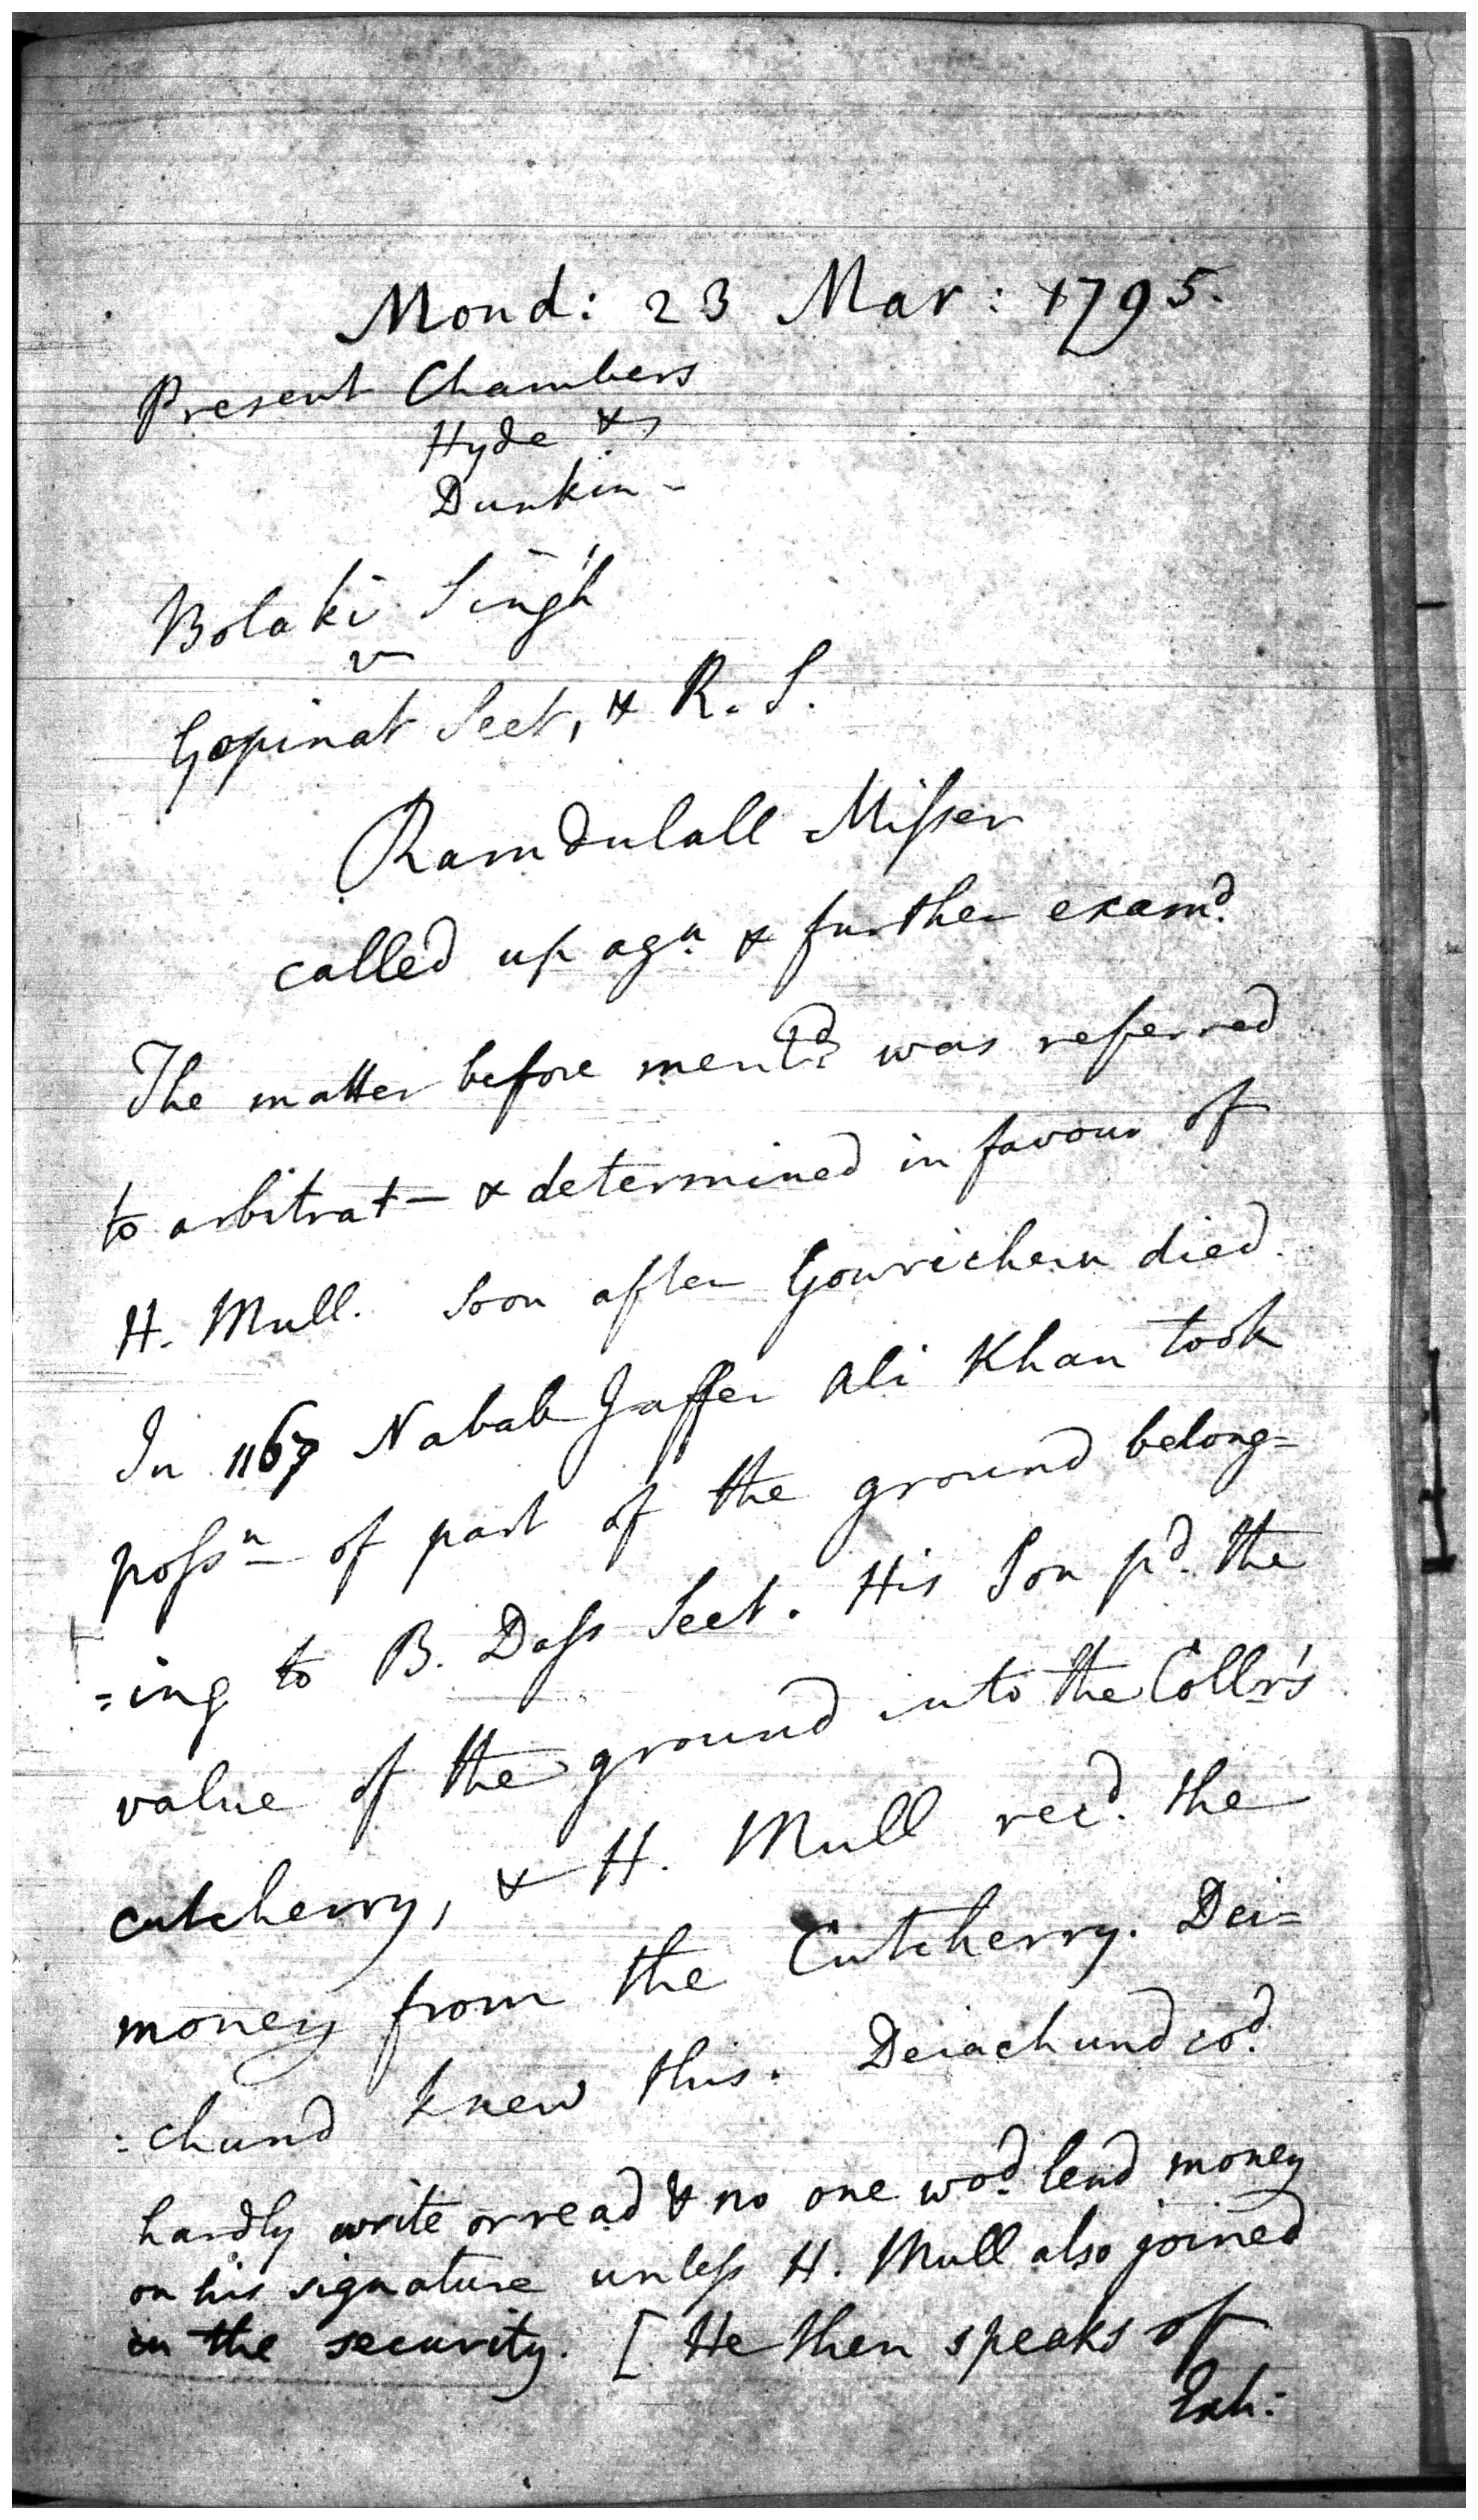 Mond: 23 Mar: 1795.
Present Chambers
Hyde &
Dunkin -
Bolaki Singh
v
Gopinat Seet, & R. S.
Ramdulall Misser
called up agn. & further examd.
The matter before mentd. was referred
to arbitrat- & determined in favour of
H. Mull. Soon after Gourichern died.
In 1167 Nabab Jaffer Ali Khan took
possn of part of the ground belong=
=ing to B. Dass Seet. His Son pd. the
value of the ground into the Collr's
cutcherry, & H. Mull recd. the
money from the Cutcherry. Dei=
:chund knew this. Deiachund cod.
hardly write or read & no one wod. lend money
on his signature unless H. Mull also joined
in the security. [ He then speaks of
Exh: